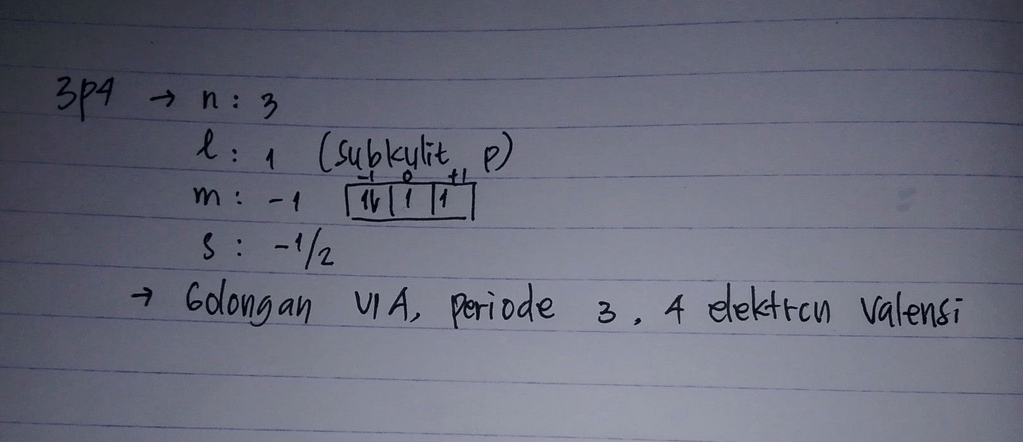 3p4 → n : 3
l : 1 (subkulit p)
-1 0 +1
m : -1 1l 1 1
s : -1/2
→ Golongan VIA, periode 3, 4 elektron valensi